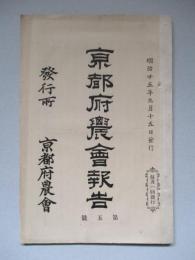 明治廿五年九月十五日發行
京都府農會報告
第五號
發行所
京都府農會